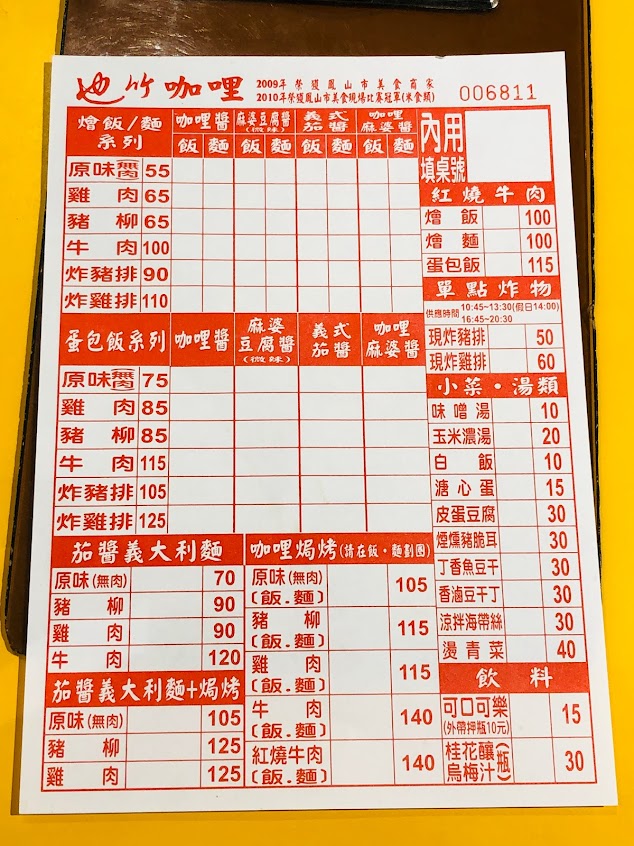 池竹咖哩
2009年 榮獲鳳山市美食商家
2010年榮獲鳳山市美食現場比賽冠軍(米食類)
006811
燴飯/麵系列
咖哩醬
麻婆豆腐醬(微辣)
義式茄醬
咖哩麻婆醬
飯 麵 飯 麵 飯 麵 飯 麵
原味無肉 55
雞肉 65
豬柳 65
牛肉 100
炸豬排 90
炸雞排 110
蛋包飯系列
咖哩醬
麻婆豆腐醬(微辣)
義式茄醬
咖哩麻婆醬
原味無肉 75
雞肉 85
豬柳 85
牛肉 115
炸豬排 105
炸雞排 125
茄醬義大利麵
原味(無肉) 70
豬柳 90
雞肉 90
牛肉 120
茄醬義大利麵+焗烤
原味(無肉) 105
豬柳 125
雞肉 125
咖哩焗烤(請在飯·麵劃圈)
原味(無肉)
(飯.麵) 105
豬柳
(飯.麵) 115
雞肉
(飯.麵) 115
牛肉
(飯.麵) 140
紅燒牛肉
(飯.麵) 140
內用
填桌號
紅燒牛肉
燴飯 100
燴麵 100
蛋包飯 115
單點炸物
供應時間 10:45~13:30(假日14:00)
16:45~20:30
現炸豬排 50
現炸雞排 60
小菜·湯類
味噌湯 10
玉米濃湯 20
白飯 10
溏心蛋 15
皮蛋豆腐 30
煙燻豬脆耳 30
丁香魚豆干 30
香滷豆干丁 30
涼拌海帶絲 30
燙青菜 40
飲料
可口可樂
(外帶押瓶10元) 15
桂花釀
烏梅汁(瓶) 30